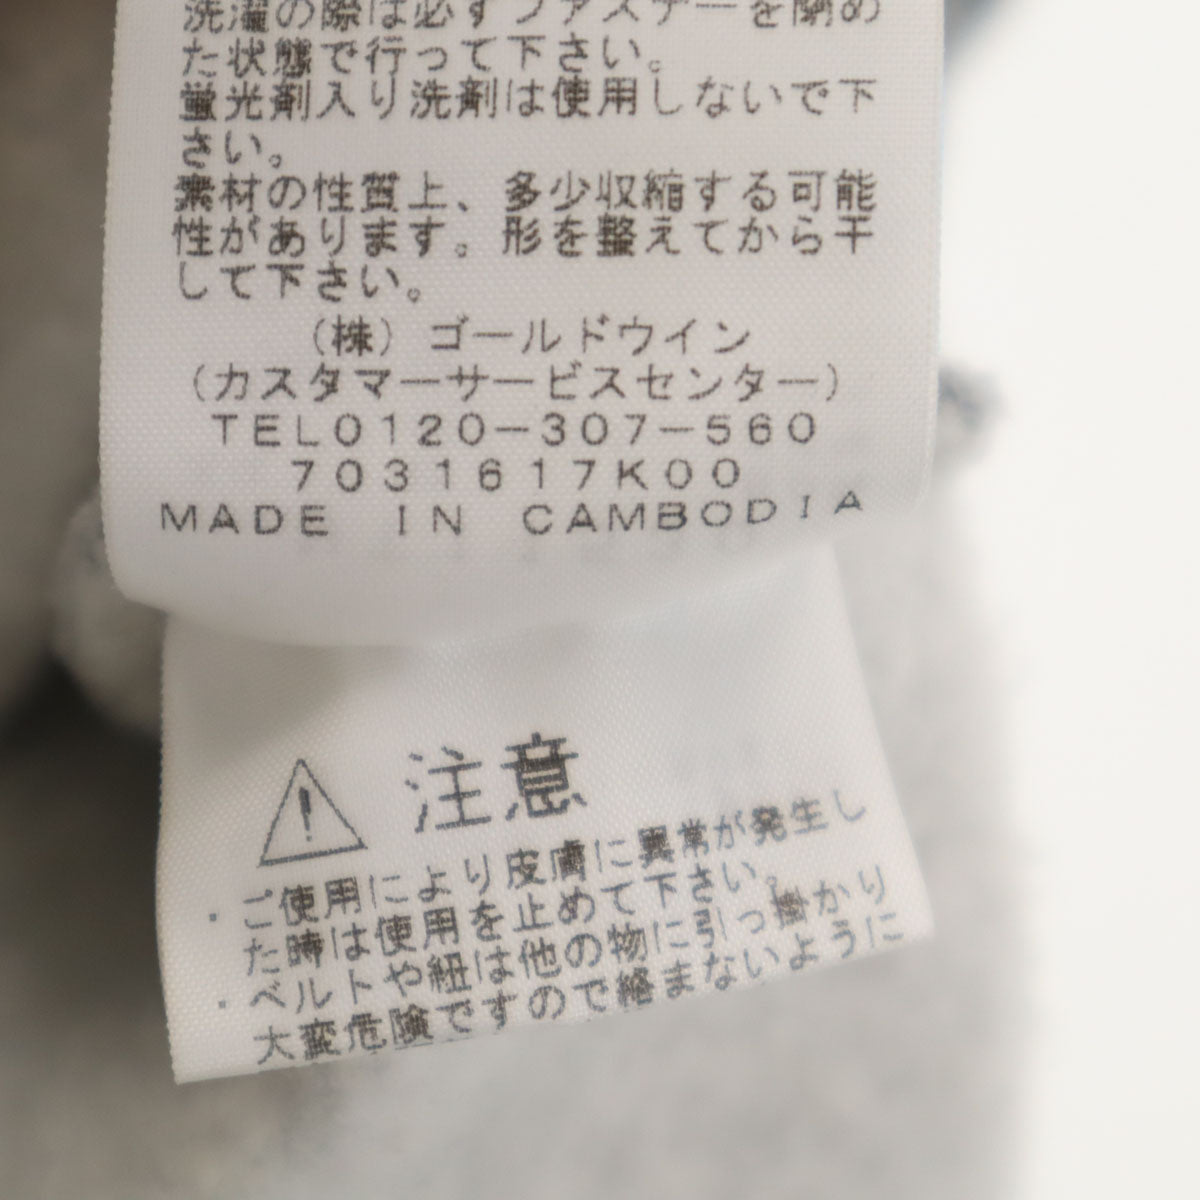 洗濯の際は必ずファスナーを閉め
た状態で行って下さい。
蛍光剤入り洗剤は使用しないで下
さい。
素材の性質上、多少収縮する可能
性があります。形を整えてから干
して下さい。
(株)ゴールドウイン
(カスタマーサービスセンター)
TEL0120-307-560
7031617K00
MADE IN CAMBODIA
注意
・ご使用により皮膚に異常が発生し
た時は使用を止めて下さい。
・ベルトや紐は他の物に引っ掛かり
大変危険ですので絡まないように